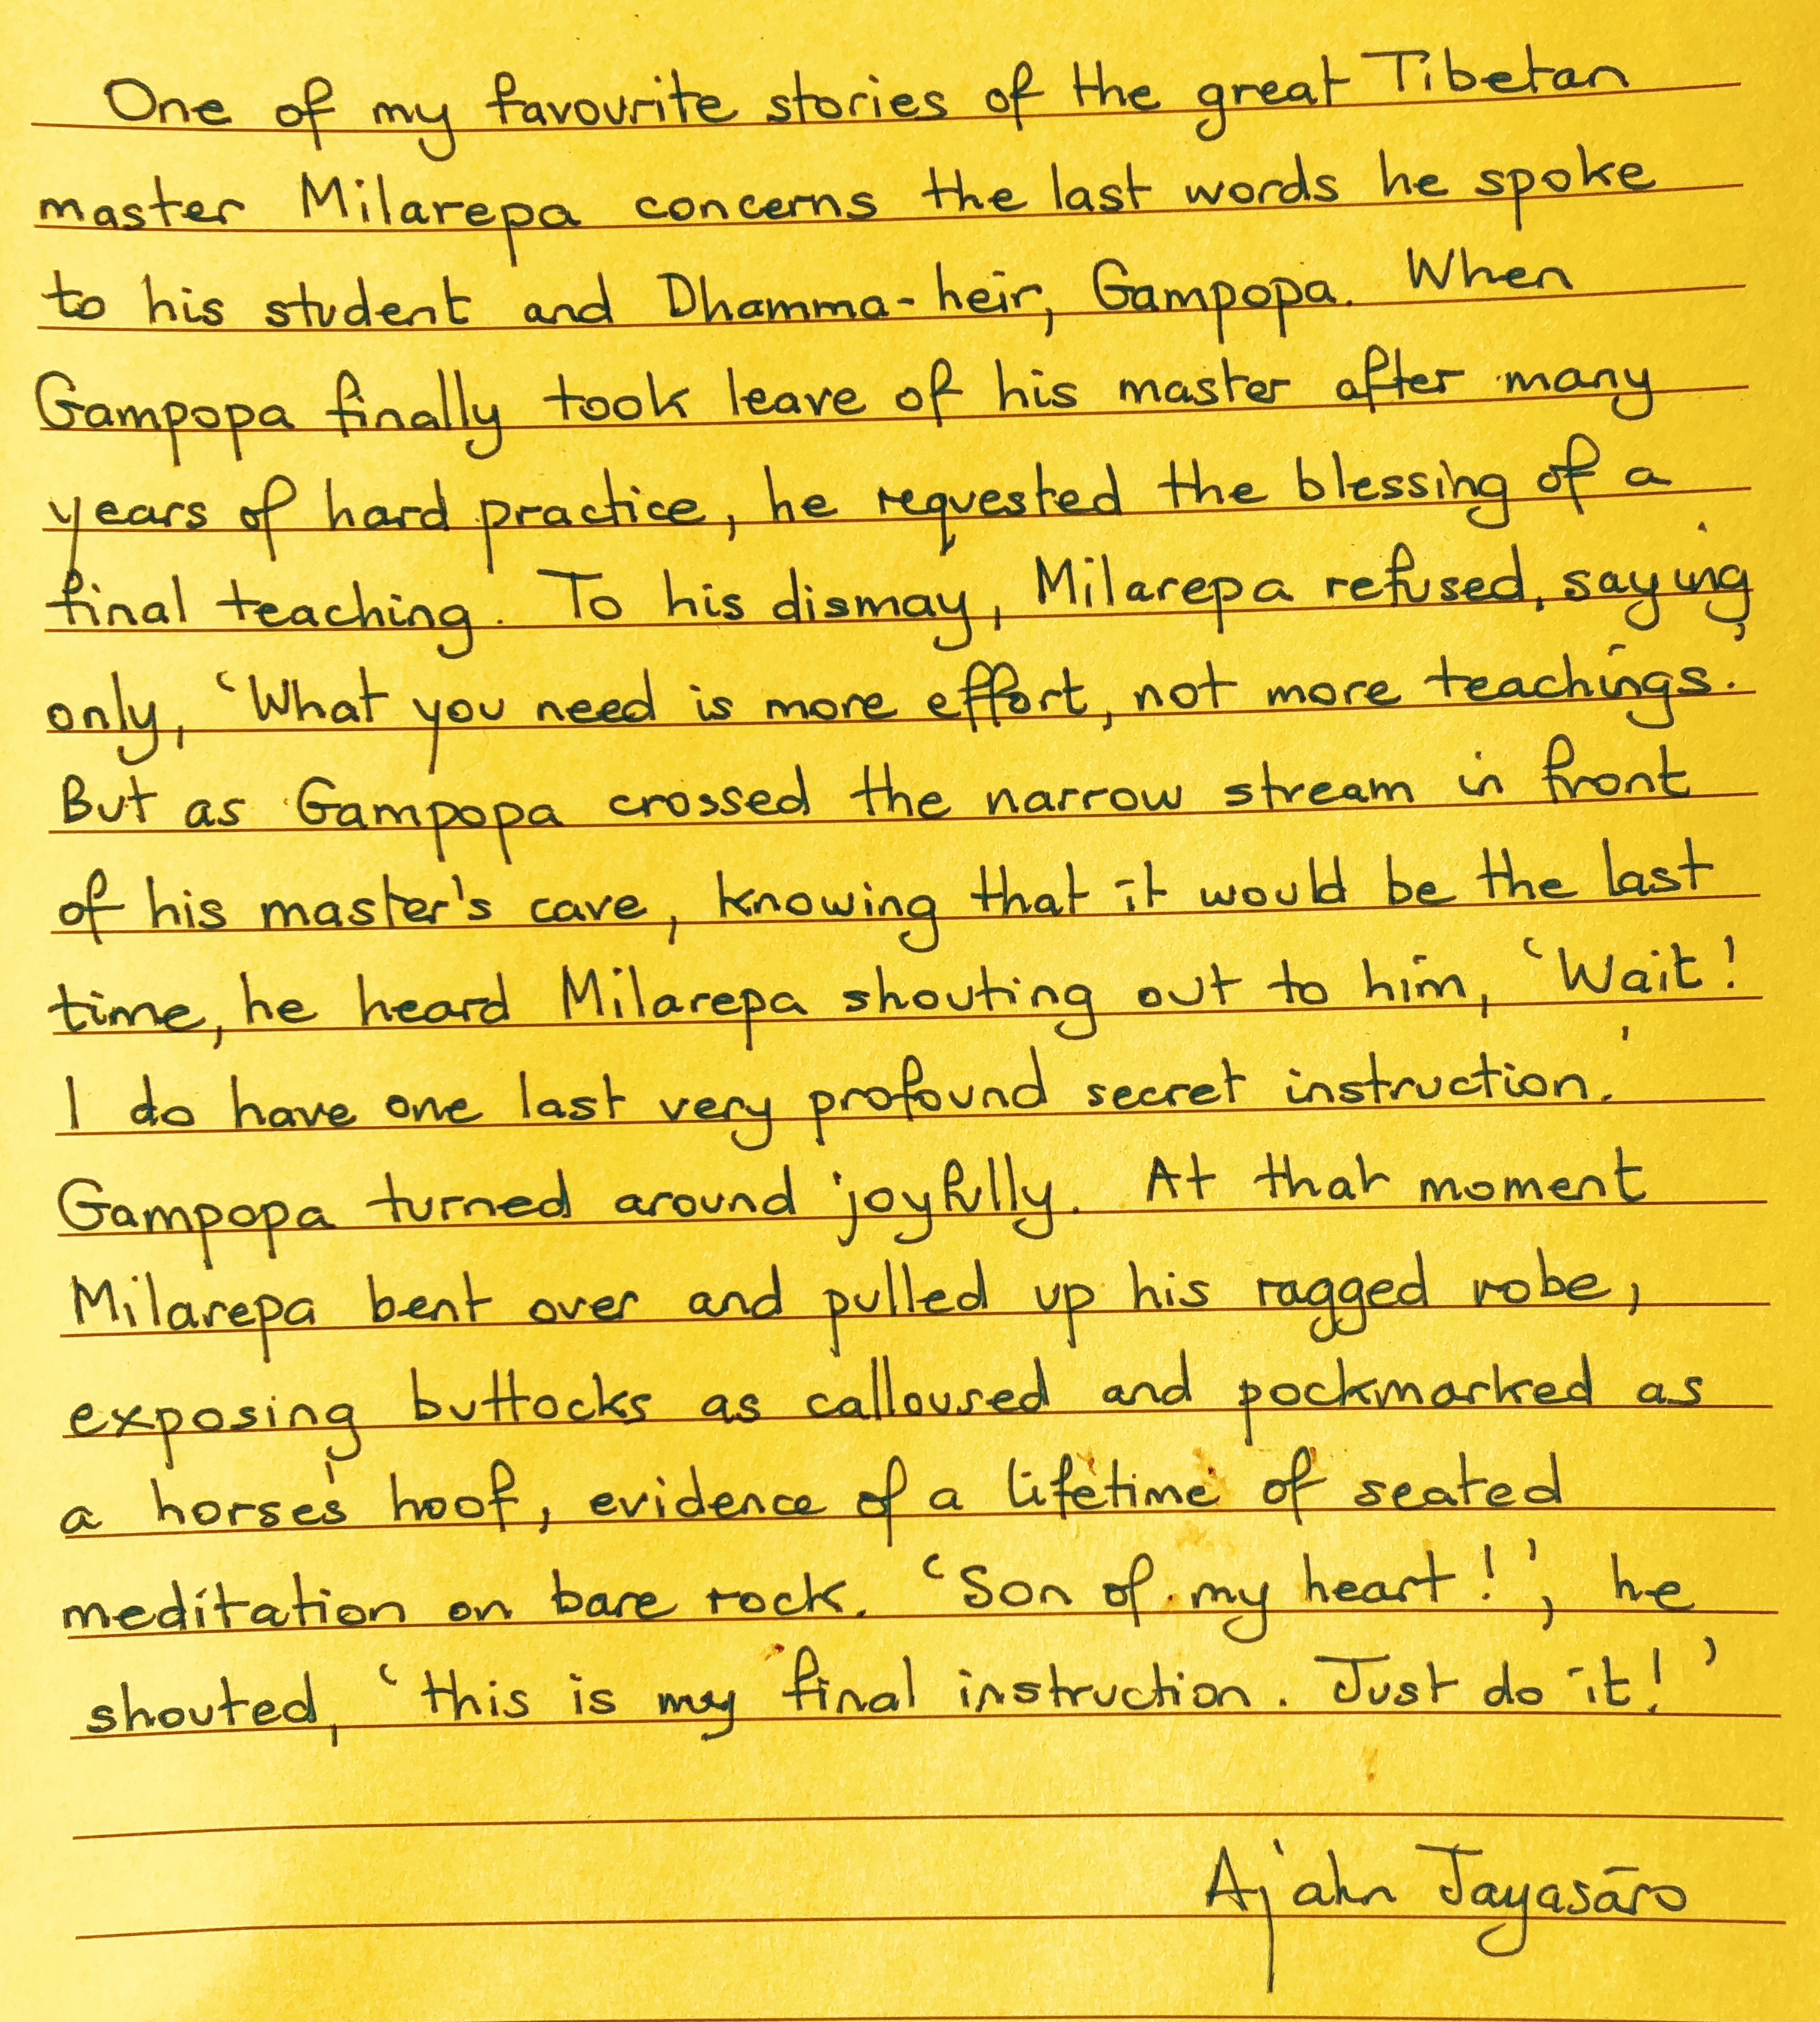 One of my favourite stories of the great Tibetan
master Milarepa concerns the last words he spoke
to his student and Dhamma-heir, Gampopa. When
Gampopa finally took leave of his master after many
years of hard practice, he requested the blessing of a
final teaching. To his dismay, Milarepa refused, saying
only, ‘What you need is more effort, not more teachings.’
But as Gampopa crossed the narrow stream in front
of his master's cave, knowing that it would be the last
time, he heard Milarepa shouting out to him, ‘Wait!
I do have one last very profound secret instruction.’
Gampopa turned around joyfully. At that moment
Milarepa bent over and pulled up his ragged robe,
exposing buttocks as calloused and pockmarked as
a horse's hoof, evidence of a lifetime of seated
meditation on bare rock. ‘Son of my heart!’, he
shouted, ‘this is my final instruction. Just do it!’
Ajahn Jayasāro